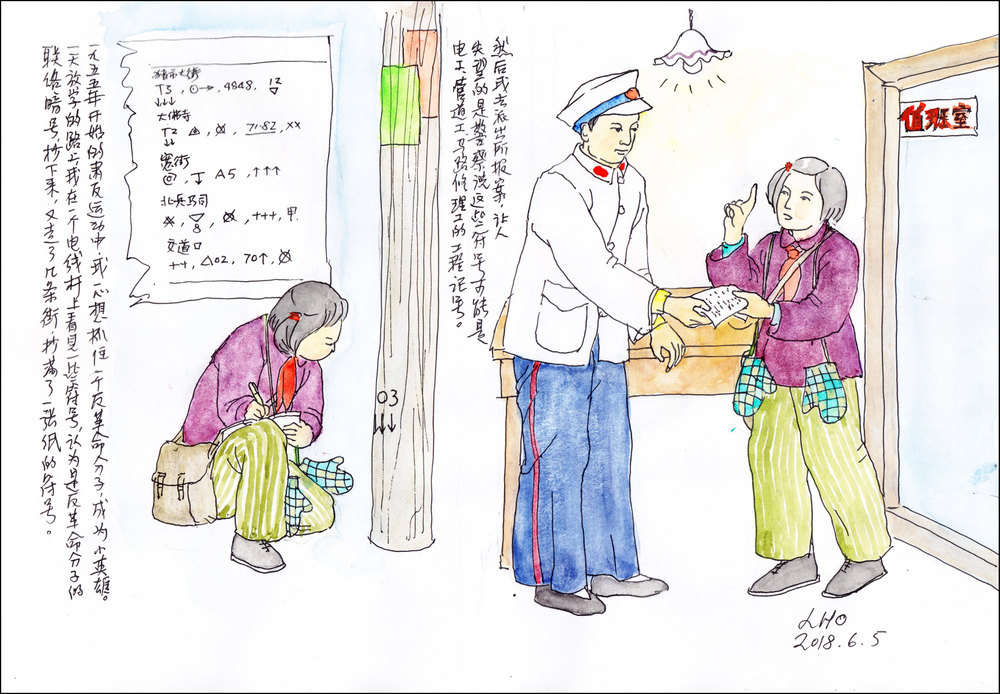 一九五五年开始的肃反运动中,我一心想抓住一个反革命分子,成为小英雄。
一天放学的路上,我在一个电线杆上看见一些符号,认为是反革命分子的
联络暗号,抄下来,又走了几条街,抄满了一张纸的符号。
猪市大街
T3 , ⊙→ , 4848 , 12
▽
↓↓↓
大佛寺
T2 , 71-82 , xx
↓↓
宽街
A5 , ↑↑↑
北兵马司
8 , +++ , 甲
交道口
++ , △02 , 70↑ ,
03
↓↓↓
然后我去派出所报案,让人
失望的是警察说这些符号可能是
电工、管道工、马路修理工的工程记号。
值班室
LHO
2018.6.5